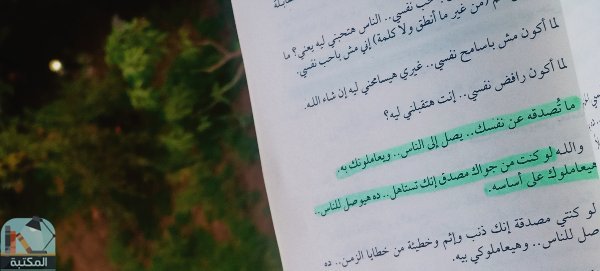 حب نفسي.. الناس هتحبني ليه يعني؟ ما
(من غير ما أنطق ولا كلمة) إني مش باحب نفسي.
لما أكون مش باسامح نفسي.. غيري هيسامحني ليه إن شاء الله.
لما أكون رافض نفسي.. إنت هتقبلني ليه؟
ما تُصدقه عن نفسك.. يصل إلى الناس.. ويعاملونك به.
والله لو كنت من جواك مصدق إنك تستاهل.. ده هيوصل للناس..
هيعاملوك على أساسه.
لو كنتي مصدقة إنك ذنب وإثم وخطيئة من خطايا الزمن.. ده
صل للناس.. وهيعاملوكي بيه.
المكتبة